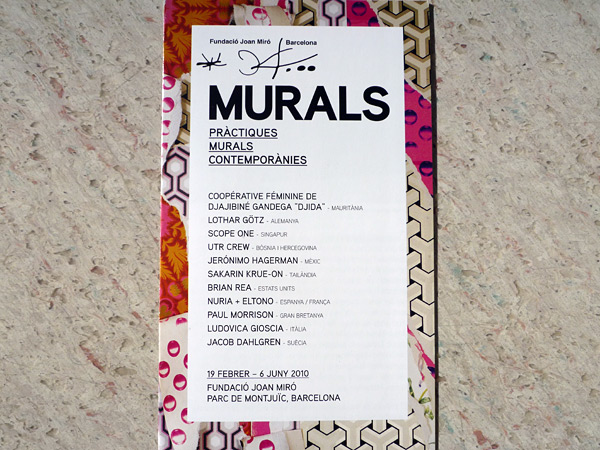 Fundació Joan Miró Barcelona
MURALS
PRÀCTIQUES
MURALS
CONTEMPORÀNIES
COOPÉRATIVE FÉMININE DE
DJAJIBINÉ GANDEGA "DJIDA" - MAURITÀNIA
LOTHAR GÖTZ - ALEMANYA
SCOPE ONE - SINGAPUR
UTR CREW - BÒSNIA I HERCEGOVINA
JERÓNIMO HAGERMAN - MÈXIC
SAKARIN KRUE-ON - TAILÀNDIA
BRIAN REA - ESTATS UNITS
NURIA + ELTONO - ESPANYA / FRANÇA
PAUL MORRISON - GRAN BRETANYA
LUDOVICA GIOSCIA - ITÀLIA
JACOB DAHLGREN - SUÈCIA
19 FEBRER – 6 JUNY 2010
FUNDACIÓ JOAN MIRÓ
PARC DE MONTJUÏC, BARCELONA